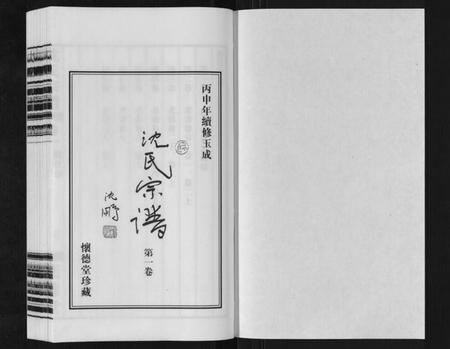 丙申年續修玉成
沈氏宗譜
第一卷
沈鵬
懷德堂珍藏